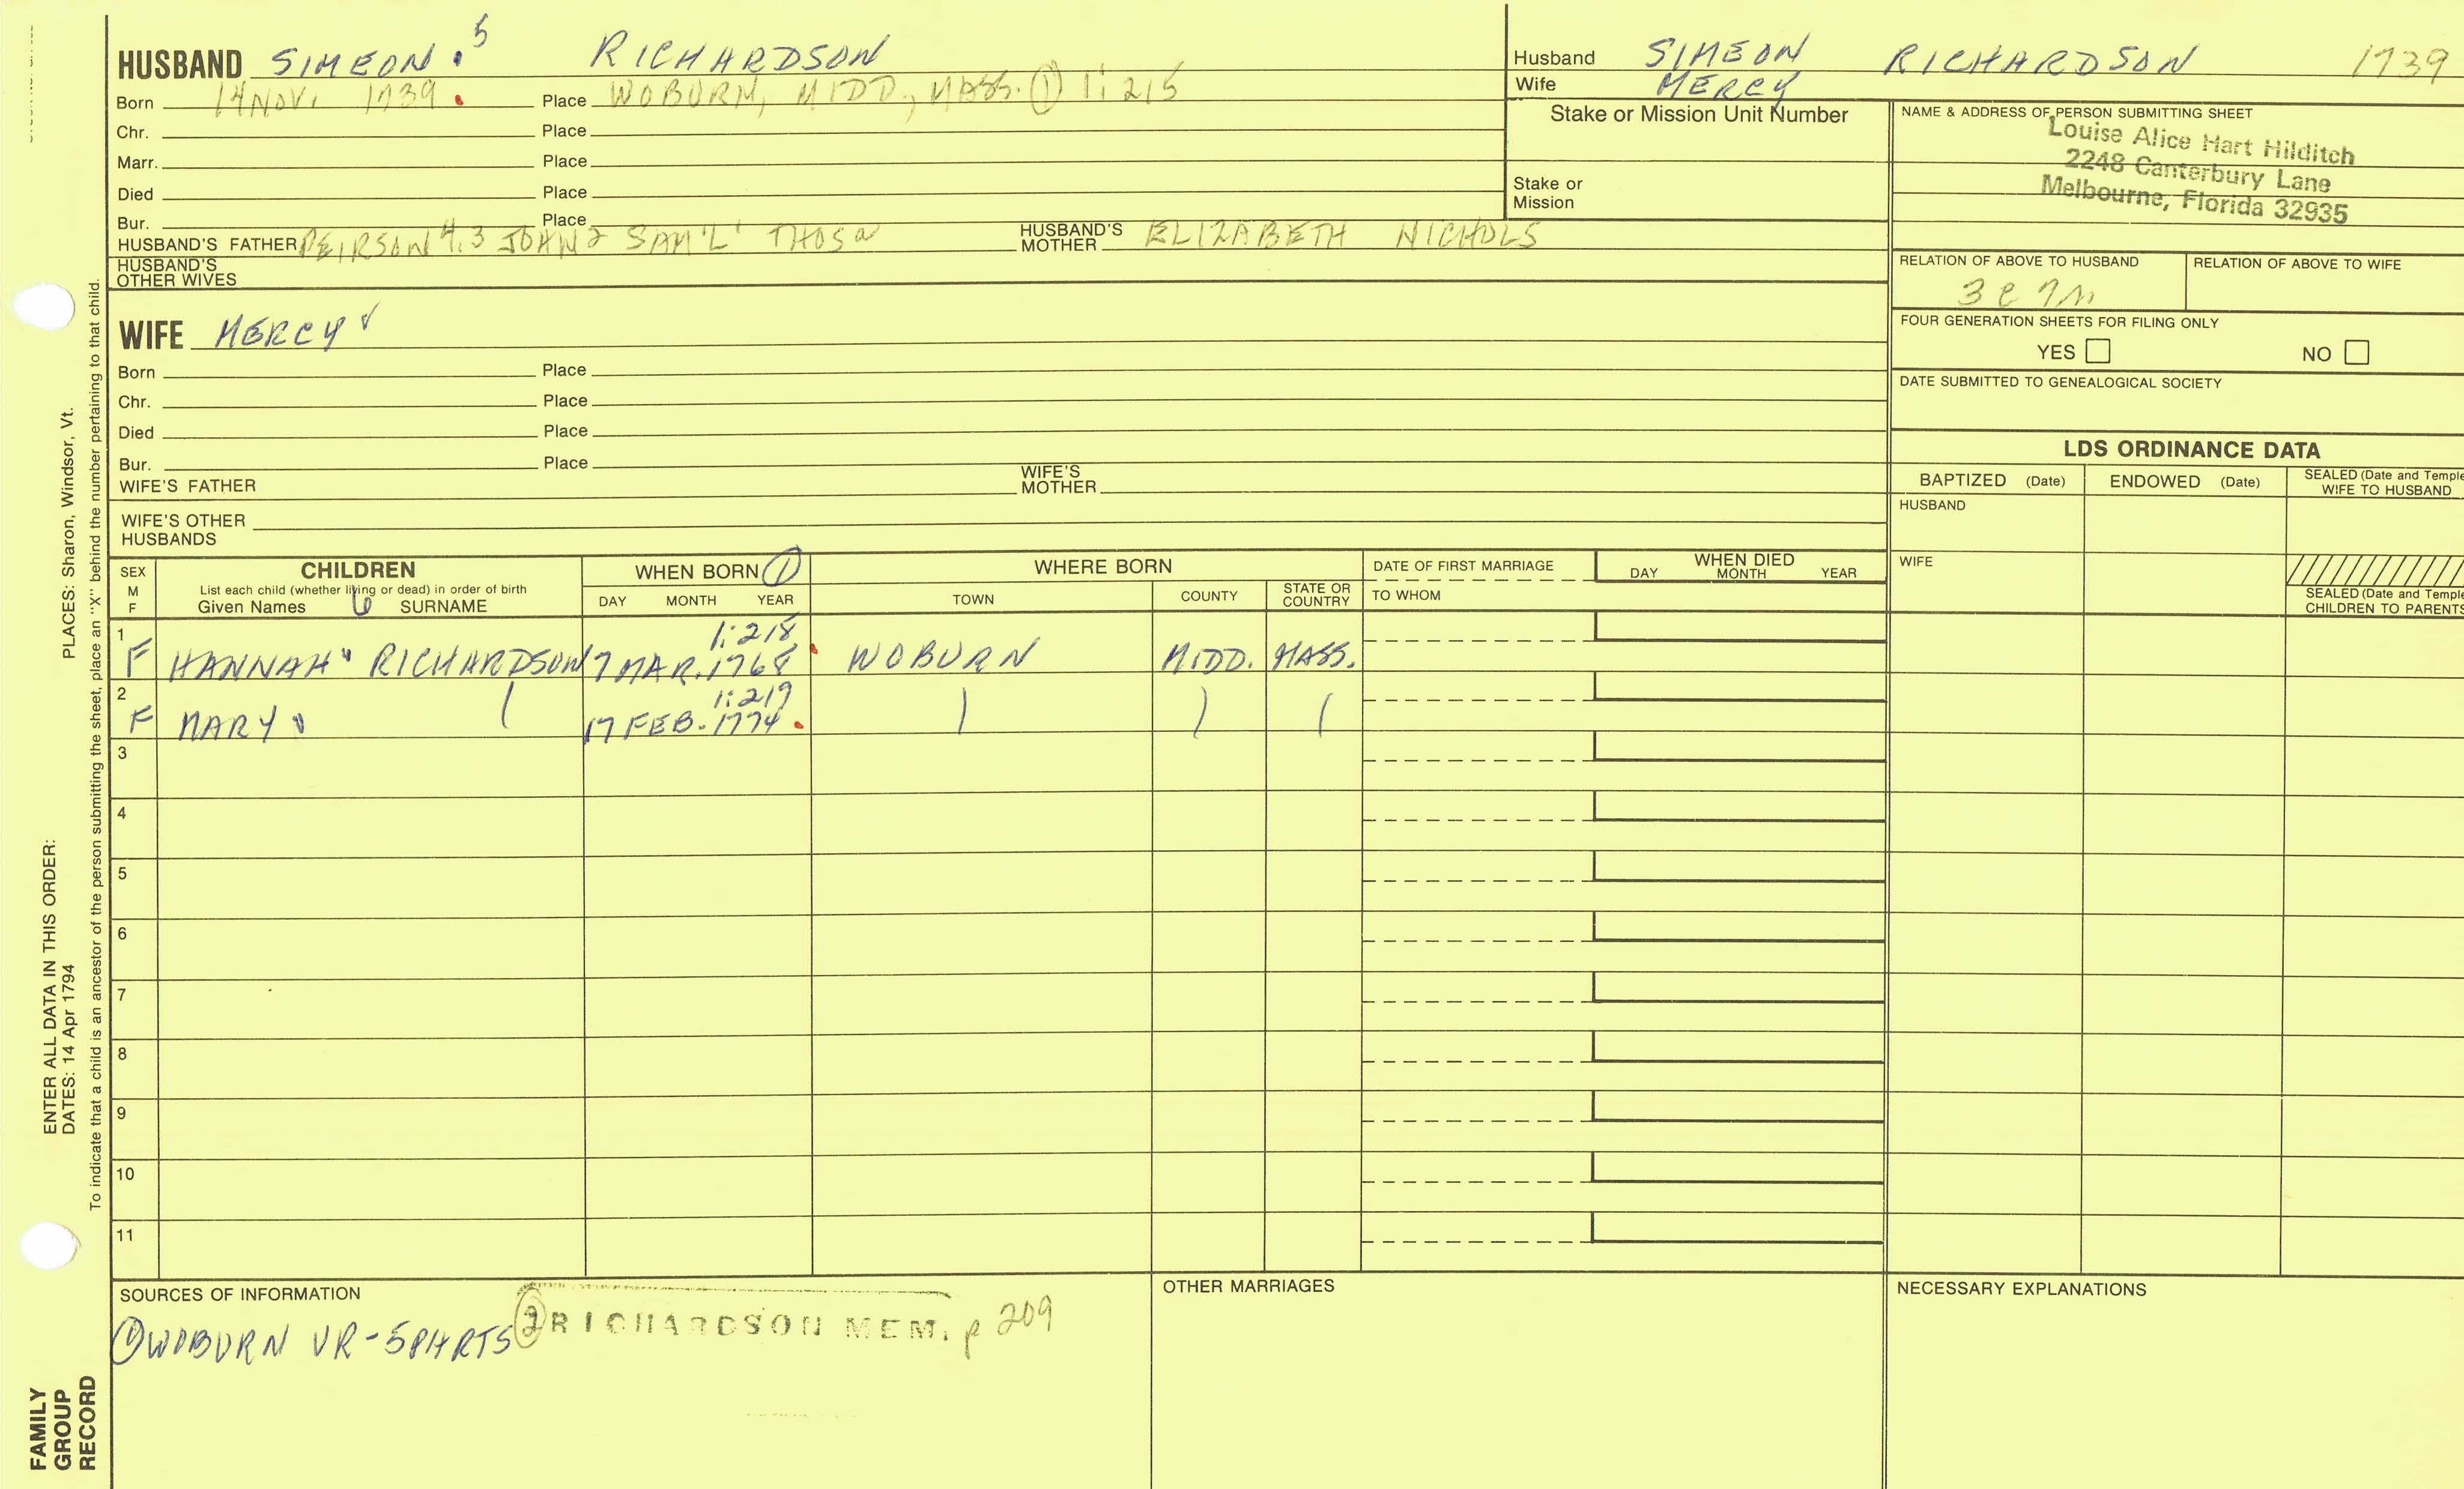 HUSBAND SIMEON 5 RICHARDSON
Born 14 NOV. 1739 Place WOBURN, MIDD, MASS. ① 1:215
Chr. Place
Marr. Place
Died Place
Bur. Place
HUSBAND'S FATHER PEIRSON 4,3 JOHN 2 SAM'L' THOS a HUSBAND'S MOTHER ELIZABETH NICHOLS
HUSBAND'S OTHER WIVES
Husband SIMEON RICHARDSON 1739
Wife MERCY
Stake or Mission Unit Number
Stake or Mission
NAME & ADDRESS OF PERSON SUBMITTING SHEET
Louise Alice Hart Hilditch
2248 Canterbury Lane
Melbourne, Florida 32935
RELATION OF ABOVE TO HUSBAND RELATION OF ABOVE TO WIFE
3 C 7
FOUR GENERATION SHEETS FOR FILING ONLY
YES NO
DATE SUBMITTED TO GENEALOGICAL SOCIETY
WIFE MERCY
Born Place
Chr. Place
Died Place
Bur. Place
WIFE'S FATHER WIFE'S MOTHER
WIFE'S OTHER HUSBANDS
LDS ORDINANCE DATA
BAPTIZED (Date) ENDOWED (Date) SEALED (Date and Temple
WIFE TO HUSBAND
HUSBAND
WIFE
SEALED (Date and Temple
CHILDREN TO PARENTS
SEX M F CHILDREN WHEN BORN ① WHERE BORN DATE OF FIRST MARRIAGE WHEN DIED
List each child (whether living or dead) in order of birth
Given Names 6 SURNAME DAY MONTH YEAR TOWN COUNTY STATE OR COUNTRY TO WHOM DAY MONTH YEAR
1 1:218
F HANNAH RICHARDSON 7 MAR. 1768 WOBURN MIDD. MASS.
2 1:219
F MARY 17 FEB. 1774
3
4
5
6
7
8
9
10
11
SOURCES OF INFORMATION OTHER MARRIAGES NECESSARY EXPLANATIONS
① WOBURN VR-5 PARTS ② RICHARDSON MEM. p 209
PLACES: Sharon, Windsor, Vt.
ENTER ALL DATA IN THIS ORDER:
DATES: 14 Apr 1794
To indicate that a child is an ancestor of the person submitting the sheet, place an "X" behind the number pertaining to that child.
FAMILY
GROUP
RECORD